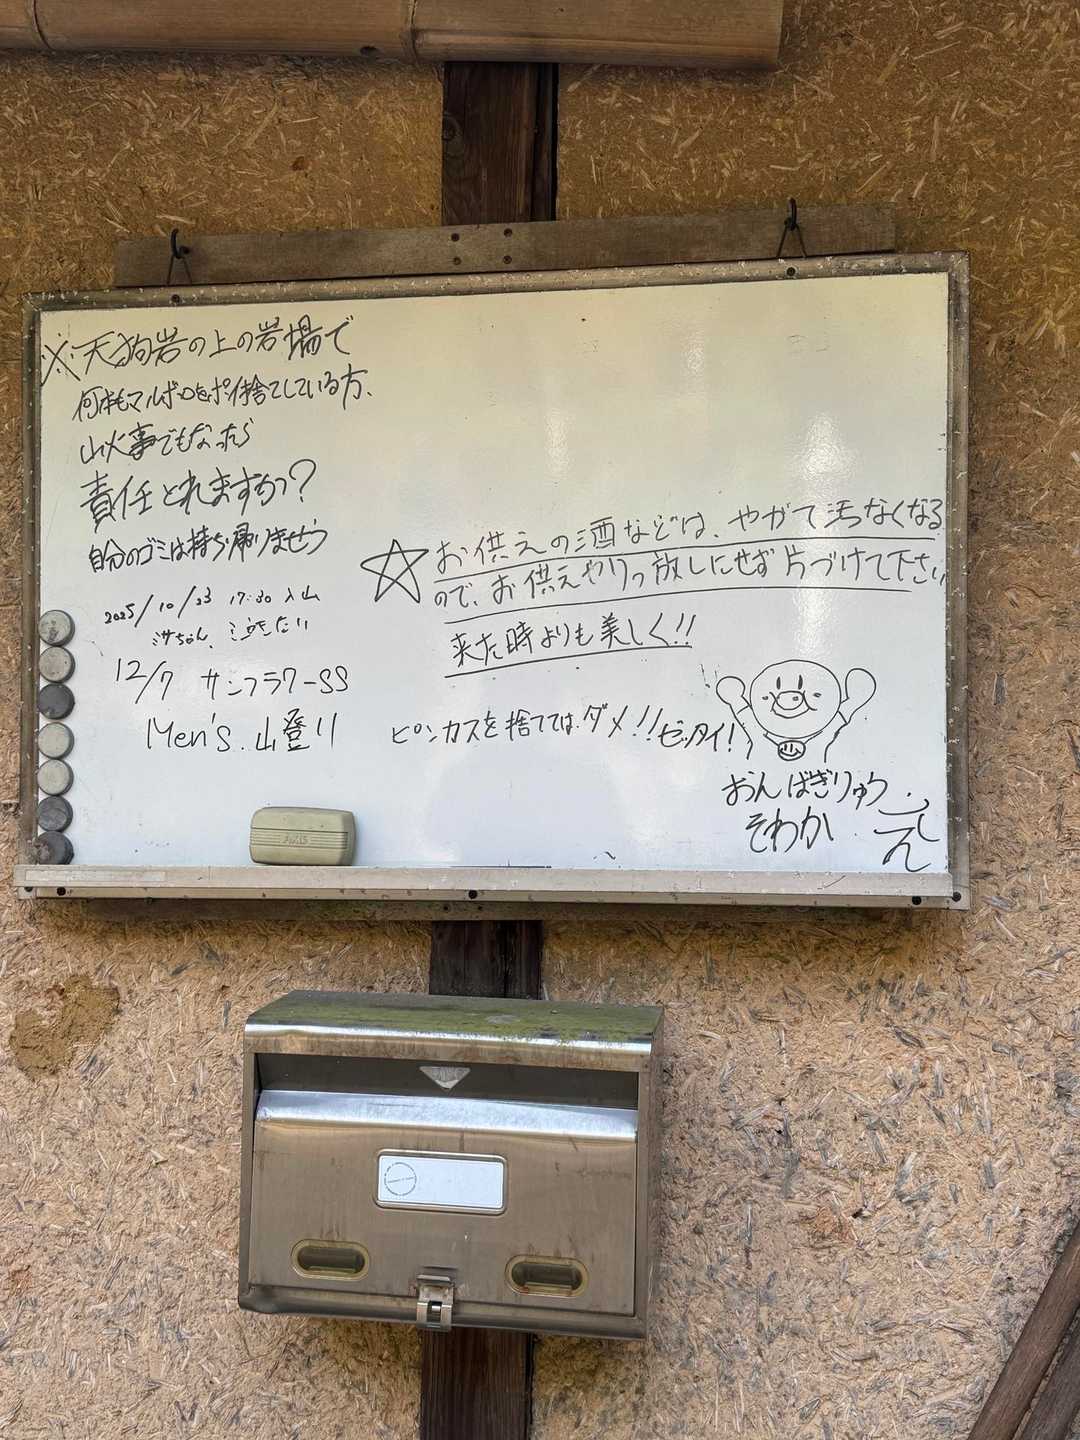 ※天狗岩の上の岩場で
何本もマルボロをポイ捨てしている方、
山火事でもなったら
責任とれますかっ?
自分のゴミは持ち帰りませう
2025/10/23 17:30 入山
ミサちゃん、泣きたい
12/7 サンフラワーSS
Men's. 山登り
☆お供えの酒などは、やがて汚なくなる
ので、お供えやりっ放しにせず片づけて下さい
来た時よりも美しく!!
ピンカスを捨てては、ダメ!!ゼッタイ!
おんばぎりゅう
そわか
AXIS